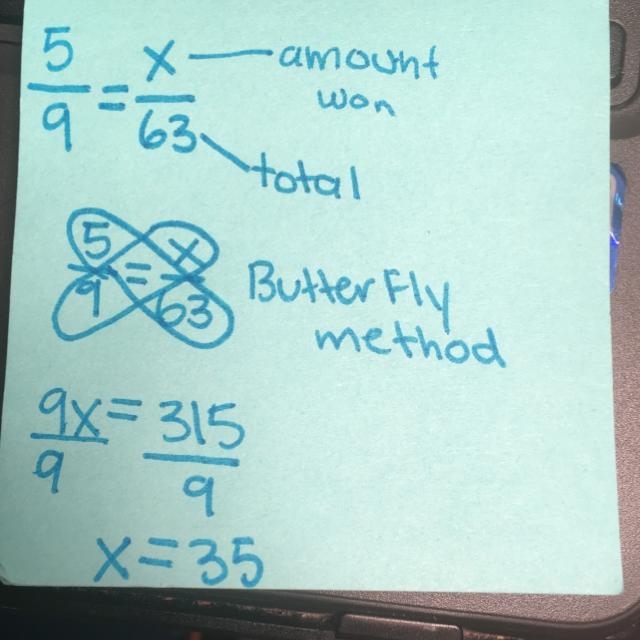 5/9 = x/63 — amount won
total
5/9 = x/63 Butterfly method
9x/9 = 315/9
x = 35